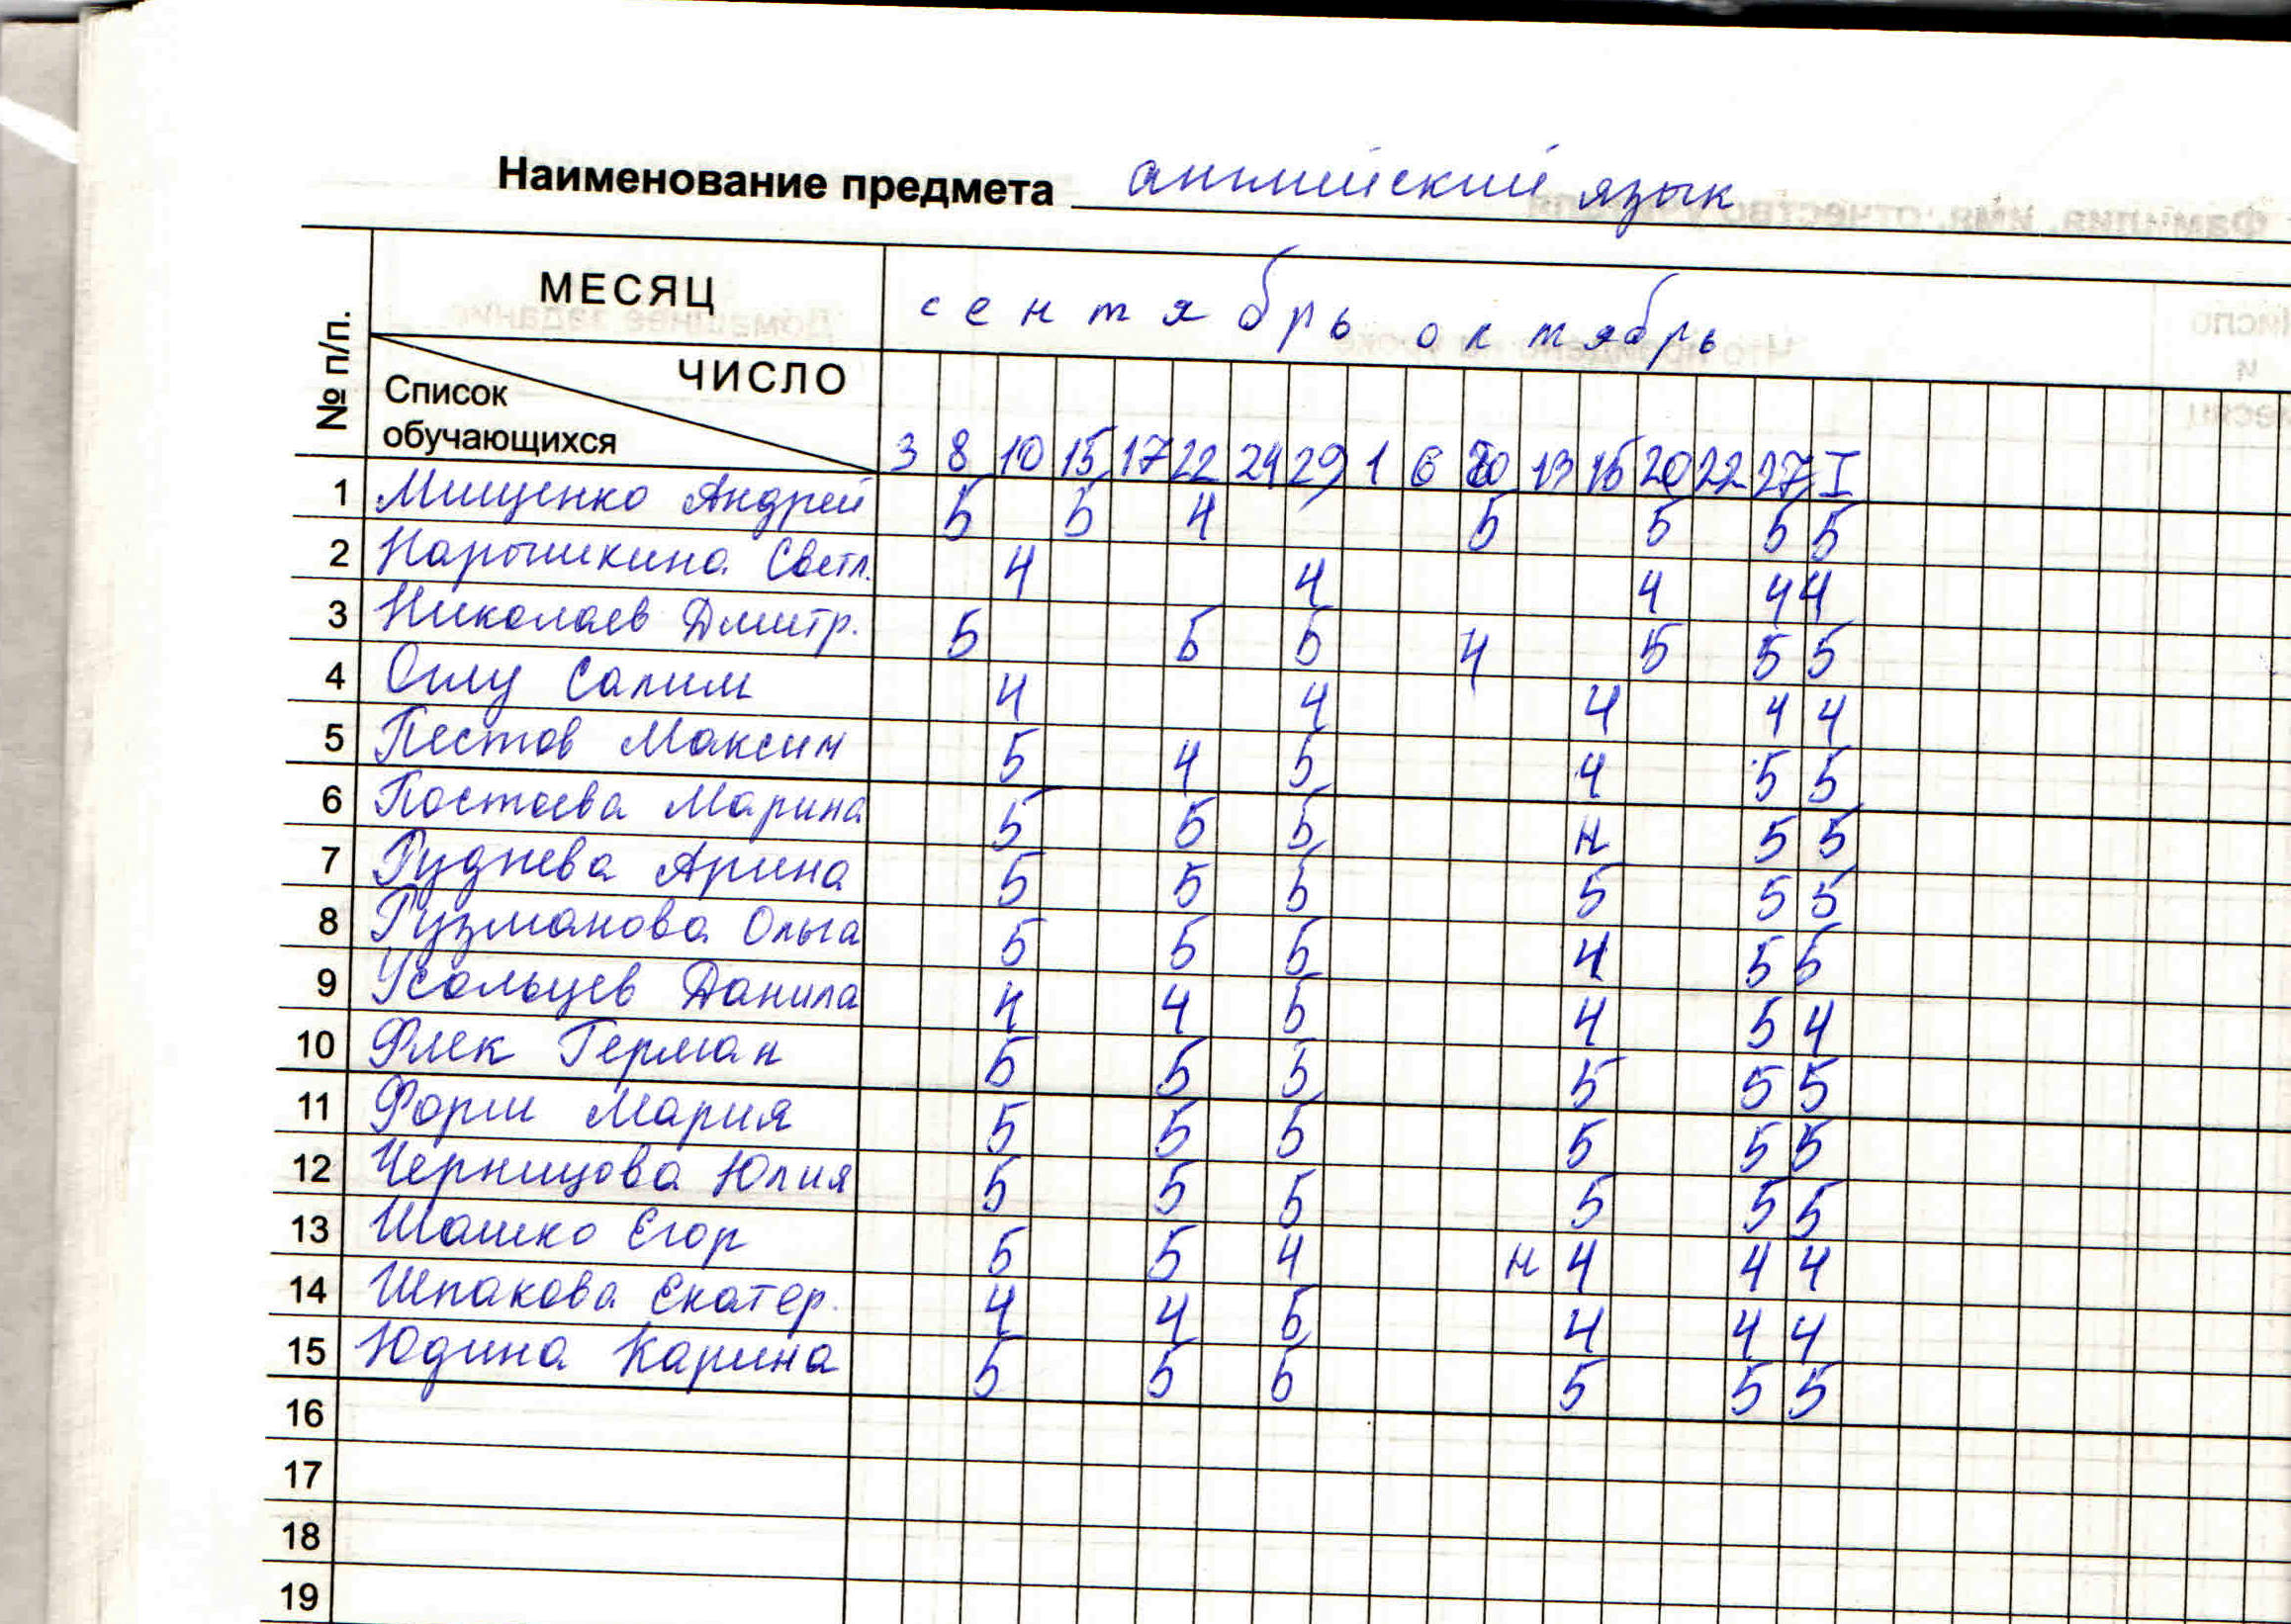 Наименование предмета английский язык
№ п/п.
МЕСЯЦ сентябрь октябрь
ЧИСЛО
Список
обучающихся
3 8 10 15 17 22 24 29 1 6 13 15 20 22 27 I
1 Мищенко Андрей 5 5 4 5 5 5 5
2 Нарышкина Светл. 4 4 4 4 4
3 Николаев Дмитр. 5 5 5 4 5 5 5
4 Оглу Салим 4 4 4 4 4
5 Пестов Максим 5 4 5 4 5 5
6 Постоева Марина 5 5 5 н 5 5
7 Руднева Арина 5 5 5 5 5 5
8 Рузманова Ольга 5 5 5 4 5 5
9 Усольцев Данила 4 4 5 4 5 4
10 Флек Герман 5 5 5 5 5 5
11 Форш Мария 5 5 5 5 5 5
12 Черницова Юлия 5 5 5 5 5 5
13 Шашко Егор 5 5 4 н 4 4 4
14 Шпакова Екатер. 4 4 5 4 4 4
15 Юдина Карина 5 5 5 5 5 5
16
17
18
19